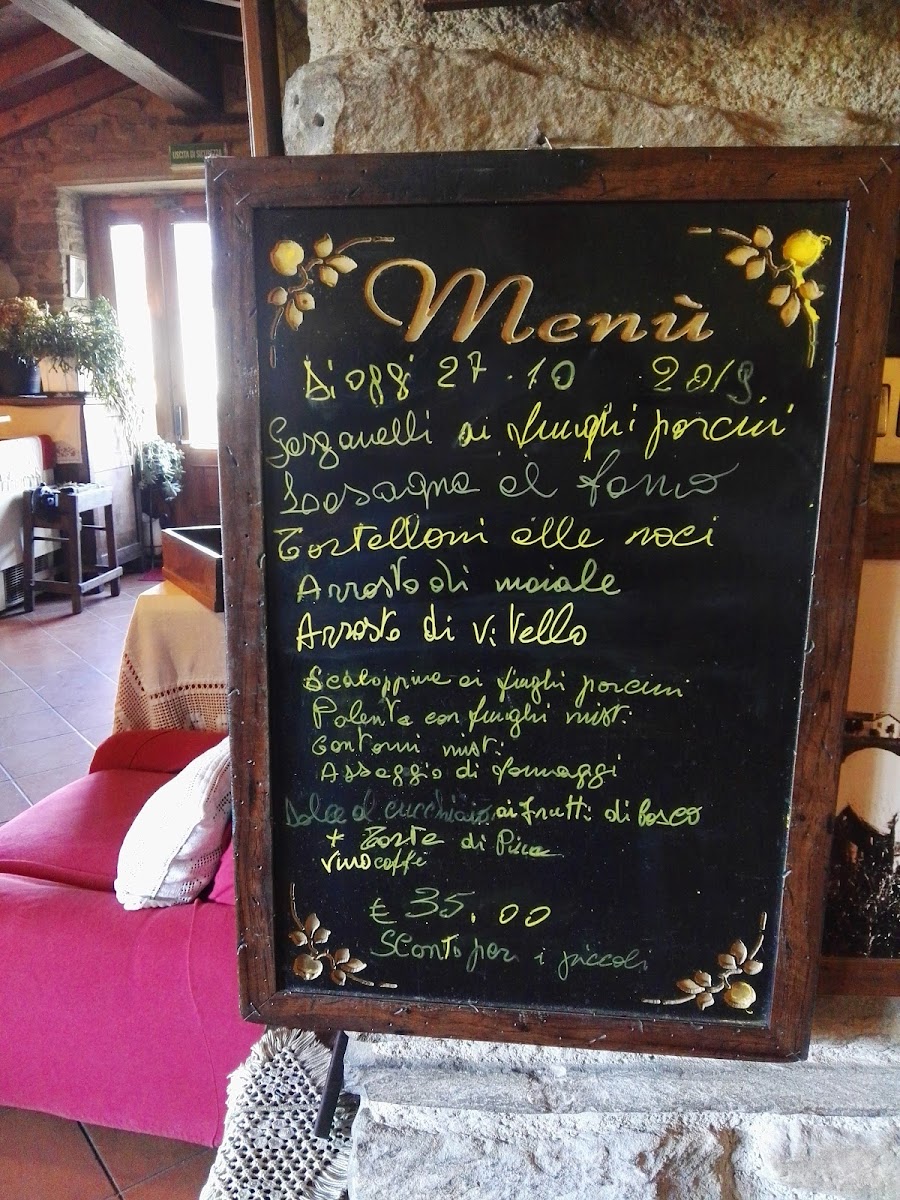 USCITA DI SICUREZZA
Menù
Di oggi 27.10 2019
Garganelli ai funghi porcini
Lasagne al forno
Tortelloni alle noci
Arrosto di maiale
Arrosto di vitello
Scaloppine ai funghi porcini
Polenta con funghi misti
Contorni misti
Assaggio di formaggi
Dolce al cucchiaio ai frutti di bosco
+ Torte di
Vino caffè
€ 35.00
Sconti per i piccoli